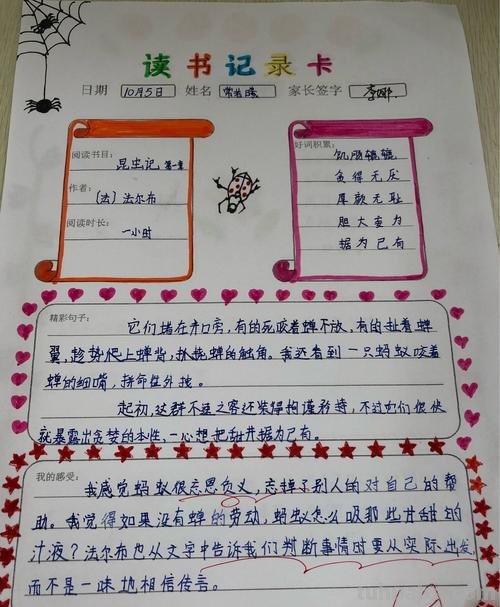 读书记录卡
日期 10月5日 姓名 常若曦 家长签字 李娜
阅读书目:
昆虫记 第一章
作者:
(法)法尔布
阅读时长:
一小时
好词积累:
饥肠辘辘
贪得无厌
厚颜无耻
胆大妄为
据为己有
精彩句子:
它们堵在井口旁,有的死咬着蝉不放,有的扯着蝉
翼,趁势爬上蝉背,扒挠蝉的触角。我还看到一只蚂蚁咬着
蝉的细嘴,拼命往外拽。
起初,这群不速之客还装得拘谨矜持,不过她们很快
就暴露出贪婪的本性,一心想把甜井据为己有。
我的感受:
我感觉蚂蚁很忘恩负义,忘掉了别人的对自己的帮
助。我觉得如果没有蝉的劳动,蚂蚁怎么吸那些甘甜的
汁液?法尔布也从文字中告诉我们判断事情时要从实际出发,
而不是一味地相信传言。